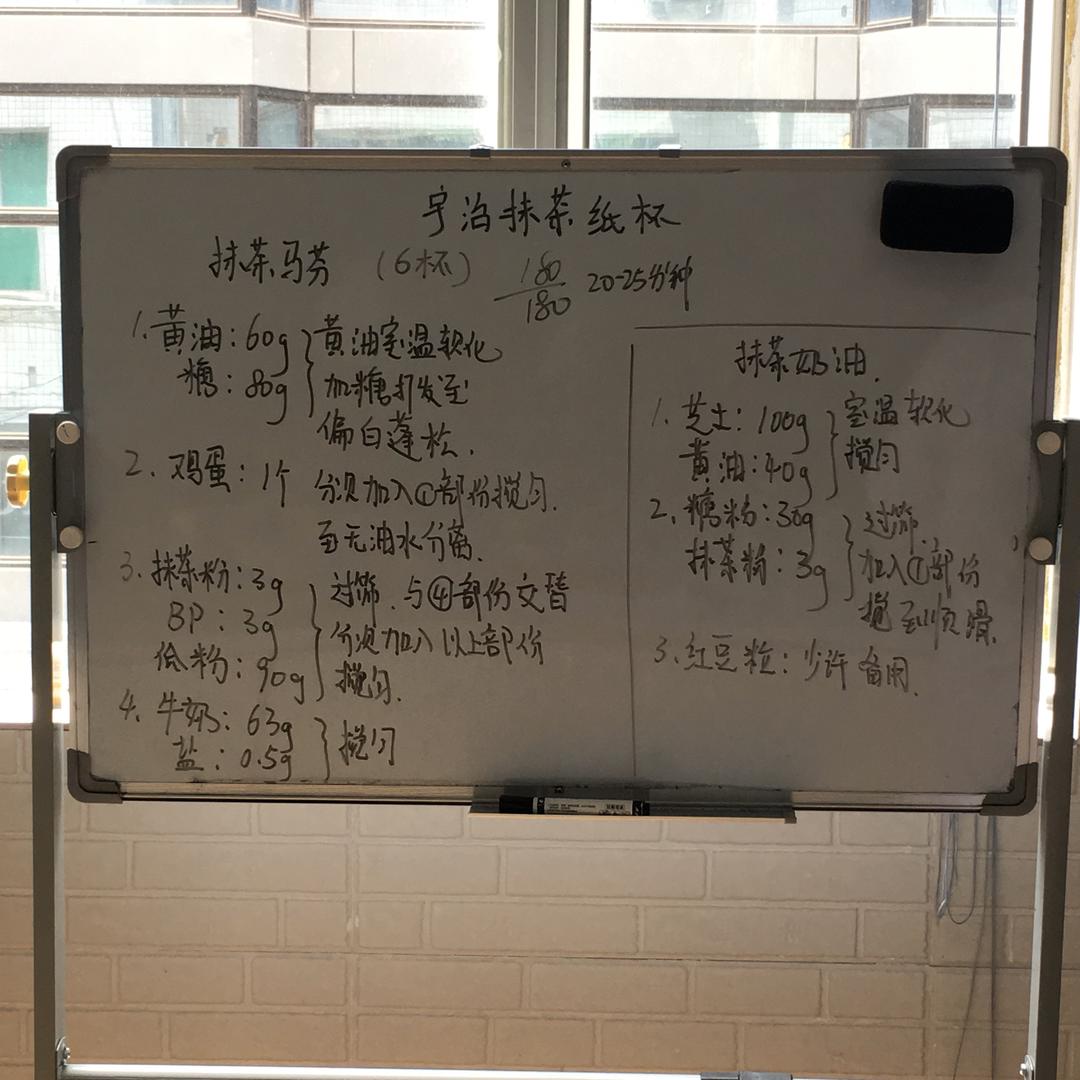 宇治抹茶纸杯
抹茶马芬 (6杯) 180/180 20-25分钟
1.黄油:60g 黄油室温软化
糖:80g 加糖打发至
偏白蓬松.
2.鸡蛋:1个 分次加入①部份搅匀.
至无油水分离.
3.抹茶粉:3g 过筛.与④部份交替
BP:3g 分次加入以上部份
低粉:90g 搅匀.
4.牛奶:63g 搅匀
盐:0.5g
抹茶奶油.
1.芝士:100g 室温软化
黄油:40g 搅匀
2.糖粉:30g 过筛.
抹茶粉:3g 加入①部份
搅至顺滑.
3.红豆粒:少许 备用.